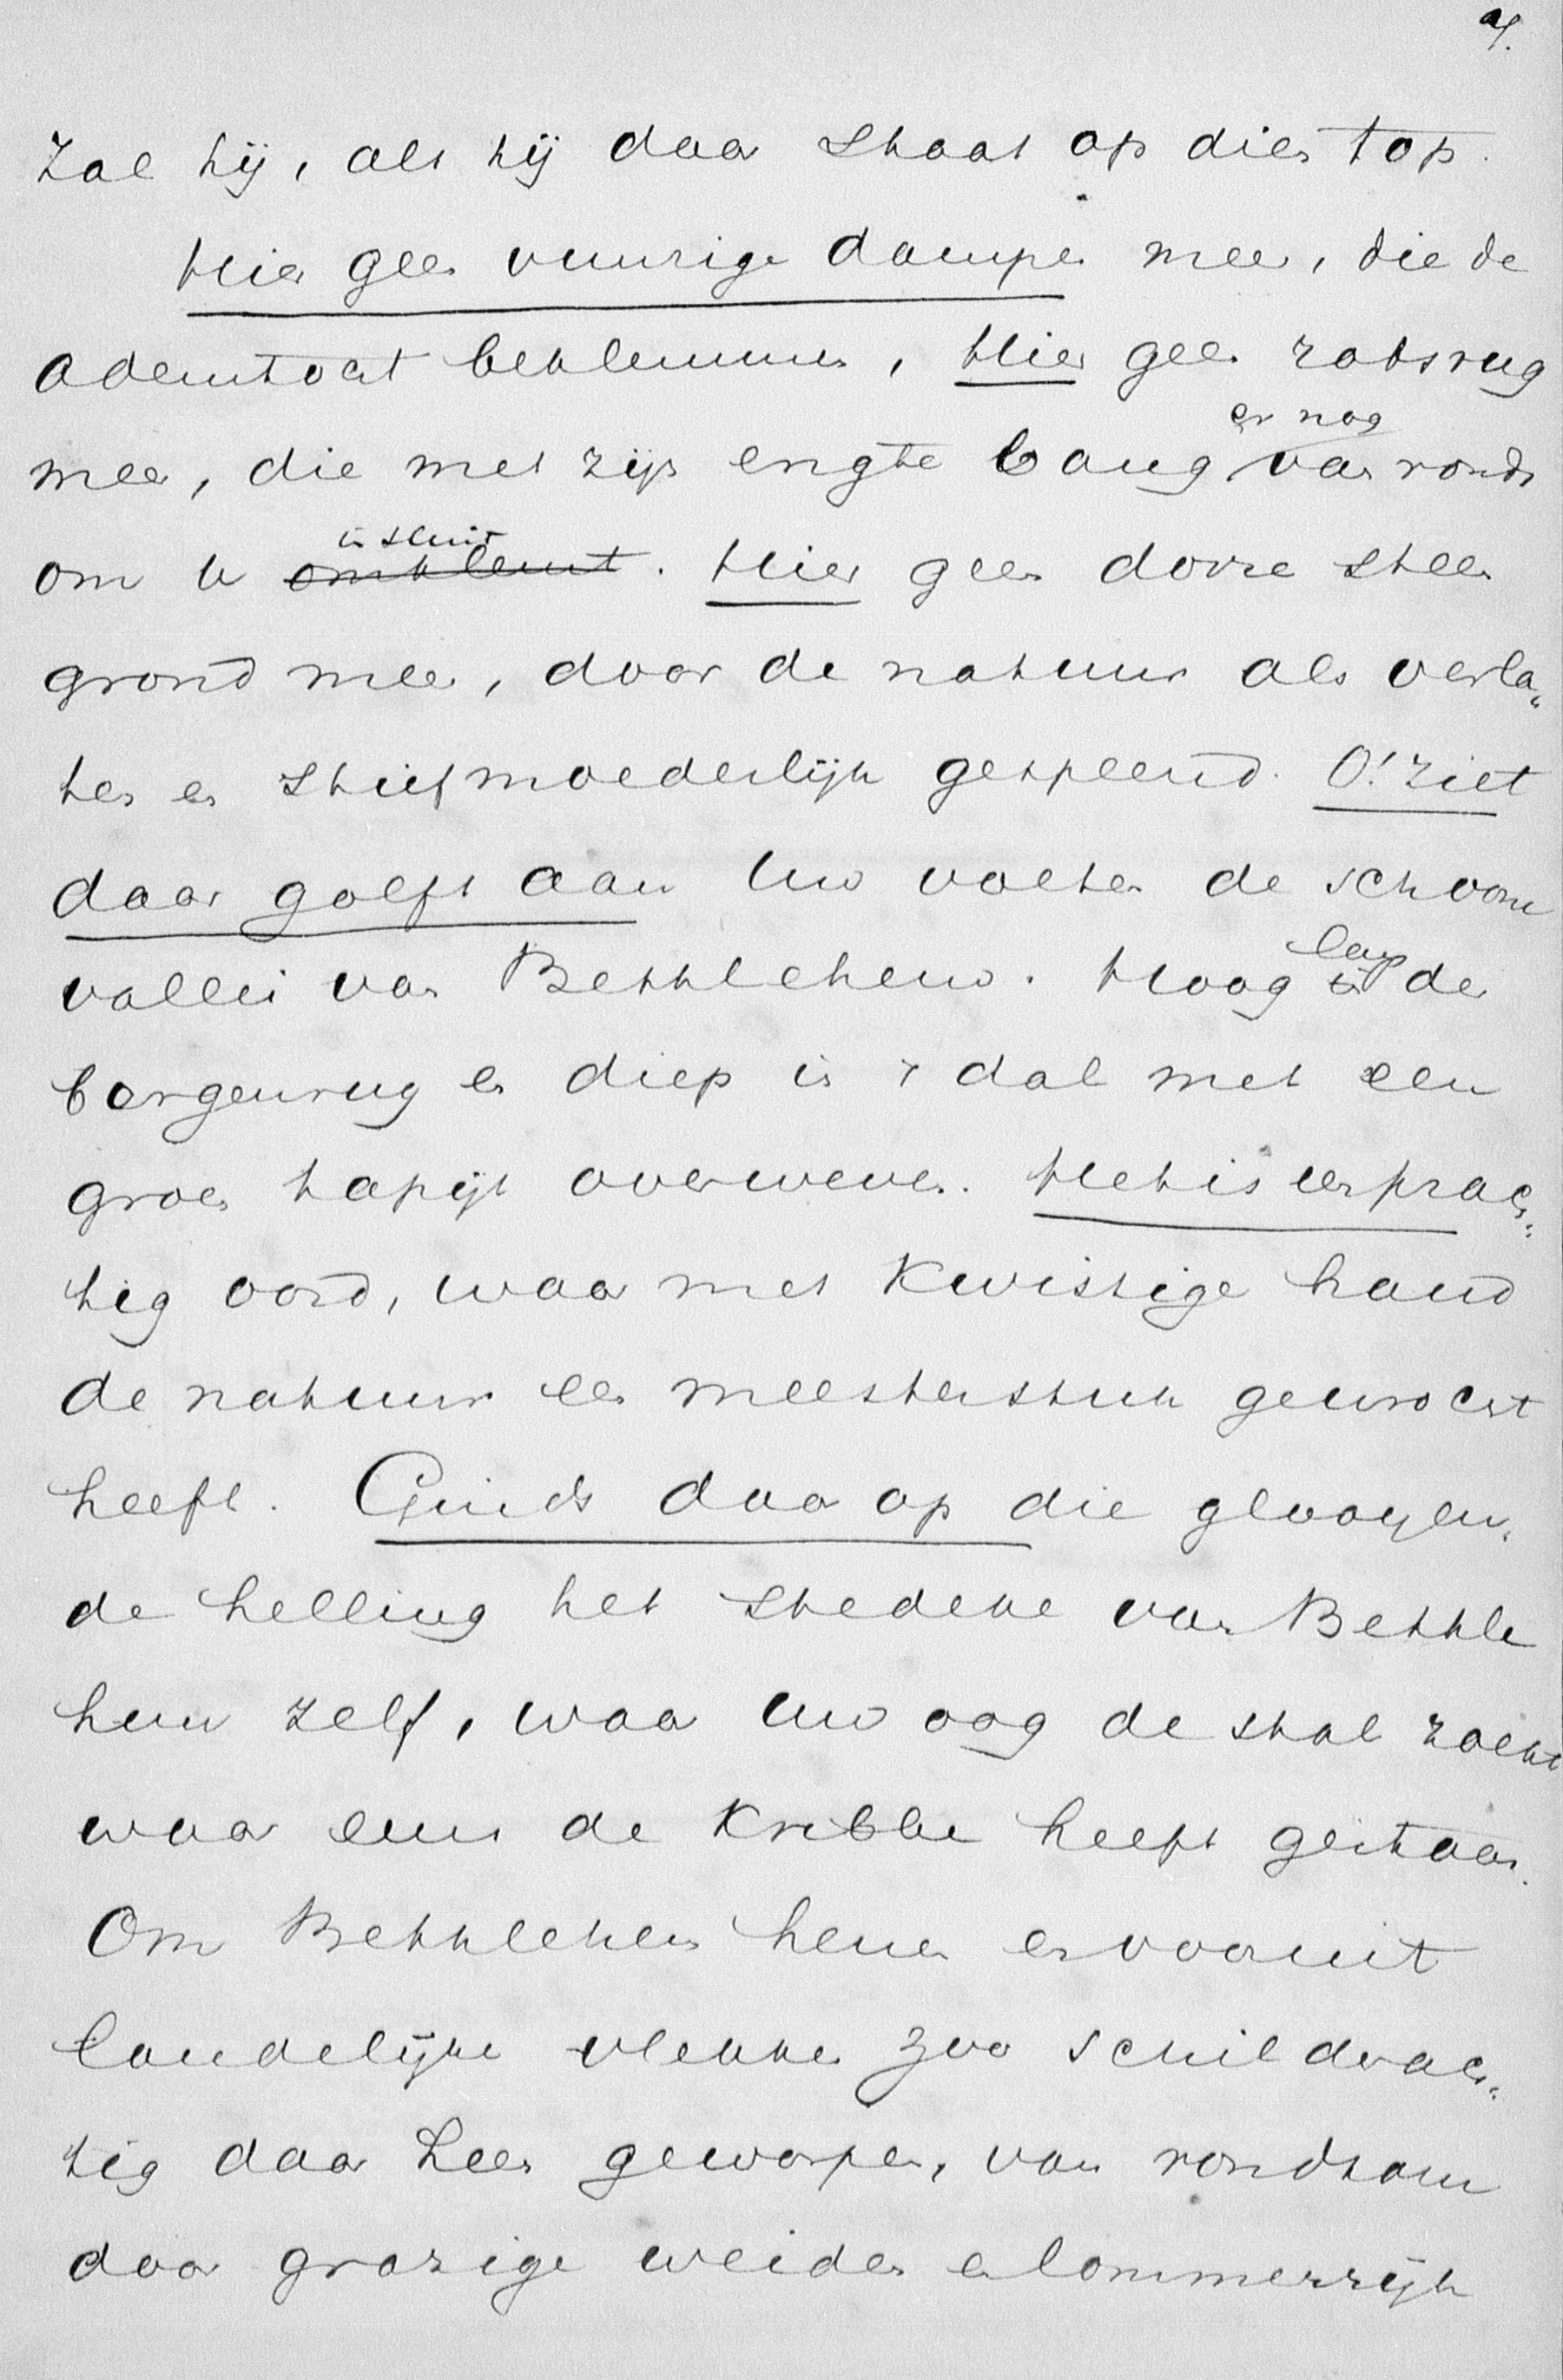 zal hij, als hij daar staat op dien top.
Hier geen vuurige dampen meer, die de
ademtocht beklemmen, Hier geen rotsrug
meer, die met zijn engte bang en nog van rondsom
om U insluit omklemt. Hier geen dorre steen
grond meer, door de natuur als verla„
ten en stiefmoederlijk gespeend. O! ziet
daar golft aan Uw voeten de schoone
vallei van Bethlehem. Hoog de
bergenrug en diep is 't dal met een
groen tapijt overweven. Het is een prach„
tig oord, waar met kwistige hand
de natuur een meesterstuk gewrocht
heeft. Ginds daar op die glooyen„
de helling het stedeke van Bethle
hem zelf, waar Uw oog de stal zoekt
waar eens de kribbe heeft gestaan.
Om Bethlehem henen en vooruit
landelijke vlekken zoo schildrach„
tig daar heen geworpen, van rondsom
door grazige weiden en lommerrijk